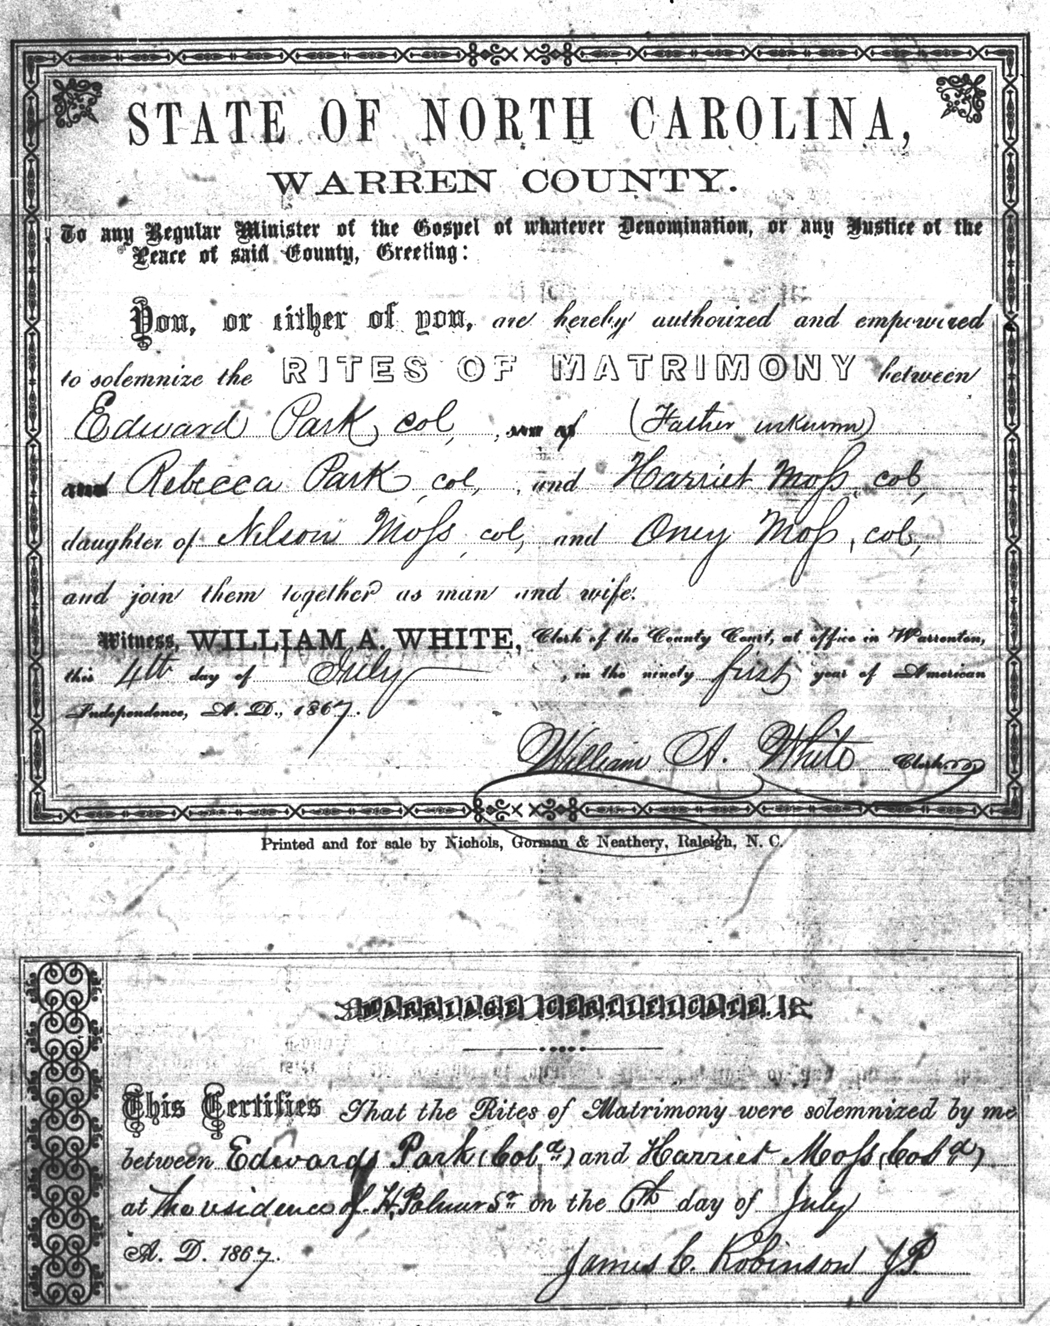 STATE OF NORTH CAROLINA,
WARREN COUNTY.
To any Regular Minister of the Gospel of whatever Denomination, or any Justice of the
Peace of said County, Greeting:
You, or either of you, are hereby authorized and empowered
to solemnize the RITES OF MATRIMONY between
Edward Park, col, , son of (Father unknown)
and Rebecca Park, col, , and Harriet Moss, col,
daughter of Nelson Moss, col, and Oney Moss, col,
and join them together as man and wife.
Witness, WILLIAM A. WHITE, Clerk of the County Court, at office in Warrenton,
this 4th day of July , in the ninety first year of American
Independence, A. D., 1867.
William A. White Clerk
Printed and for sale by Nichols, Gorman & Neathery, Raleigh, N. C.
MARRIAGE CERTIFICATE.
This Certifies That the Rites of Matrimony were solemnized by me
between Edward Park (Col.d) and Harriet Moss (Col.d)
at the residence of H. Palmer Sr on the 6th day of July
A. D. 1867.
James C. Robinson J.P.